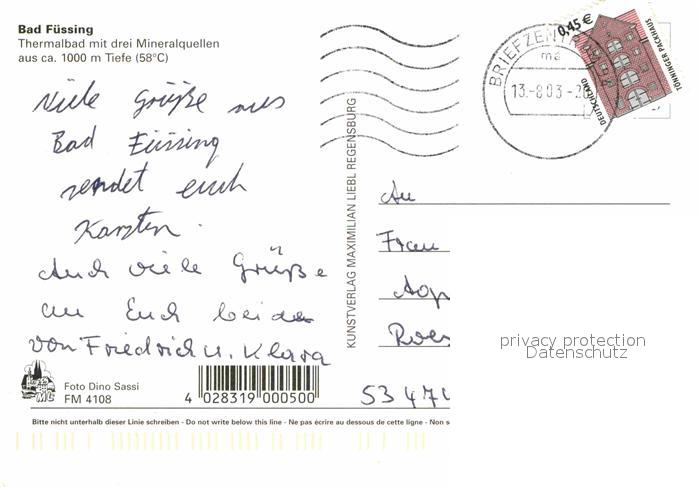 Bad Füssing
Thermalbad mit drei Mineralquellen
aus ca. 1000 m Tiefe (58°C)
Viele Grüße aus
Bad Füssing
sendet euch
Karsten.
Auch viele Grüße
an Euch beide
von Friedrich u. Klara
Foto Dino Sassi
FM 4108
MC
4 028319 000500
Bitte nicht unterhalb dieser Linie schreiben - Do not write below this line - Ne pas écrire au dessous de cette ligne - Non s
KUNSTVERLAG MAXIMILIAN LIEBL REGENSBURG
BRIEFZENTR
ma
13.-8.03-2
0,45 €
DEUTSCHLAND
TÖNNINGER PACKHAUS
An
Frau
Roe
5347
privacy protection
Datenschutz